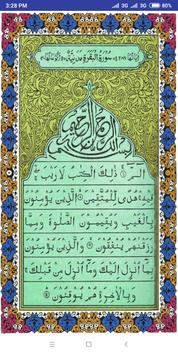 3:28 PM 3G 3G
سُوْرَةُ الْبَقَرَةِ مَدَنِيَّةٌ
بِسْمِ اللّٰهِ الرَّحْمٰنِ الرَّحِيْمِ
الٓمّٓ ذٰلِكَ الْكِتٰبُ لَا رَيْبَ
فِيْهِ هُدًى لِّلْمُتَّقِيْنَ الَّذِيْنَ يُؤْمِنُوْنَ
بِالْغَيْبِ وَيُقِيْمُوْنَ الصَّلٰوةَ وَمِمَّا
رَزَقْنٰهُمْ يُنْفِقُوْنَ وَالَّذِيْنَ يُؤْمِنُوْنَ
بِمَآ اُنْزِلَ اِلَيْكَ وَمَآ اُنْزِلَ مِنْ قَبْلِكَ
وَبِالْاٰخِرَةِ هُمْ يُوْقِنُوْنَ